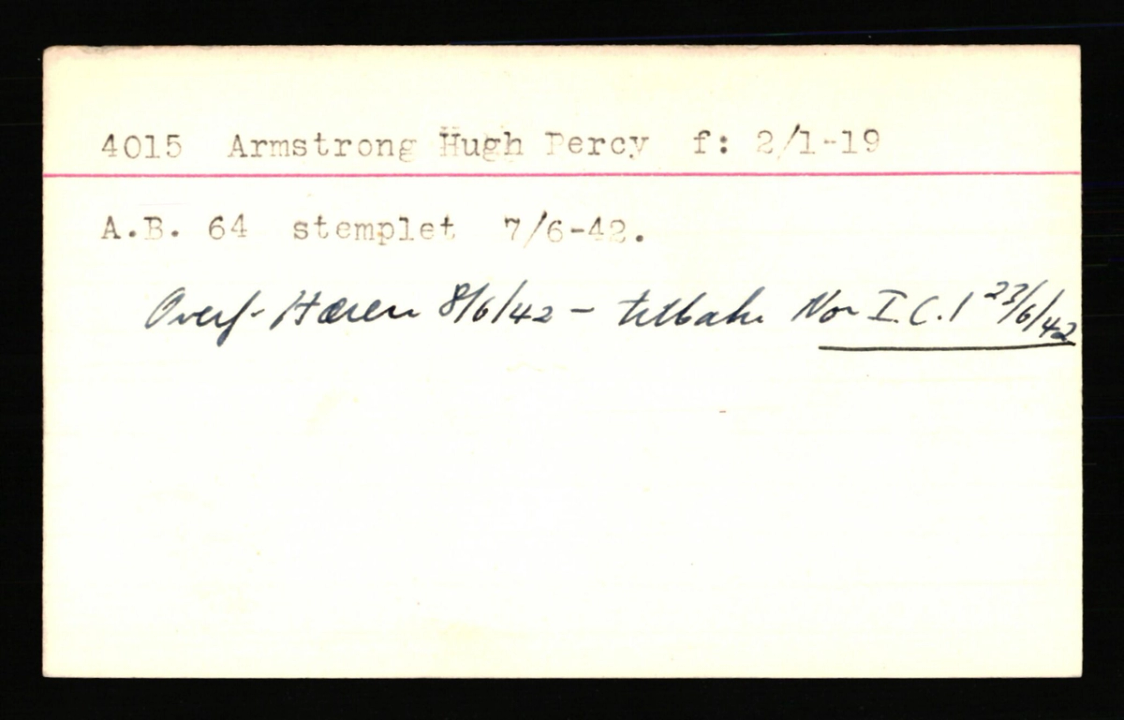 4015 Armstrong Hugh Percy f: 2/1-19
A.B. 64 stemplet 7/6-42.
Overf. Hæren 8/6/42 – tilbake Nor I.C. / 23/6/42